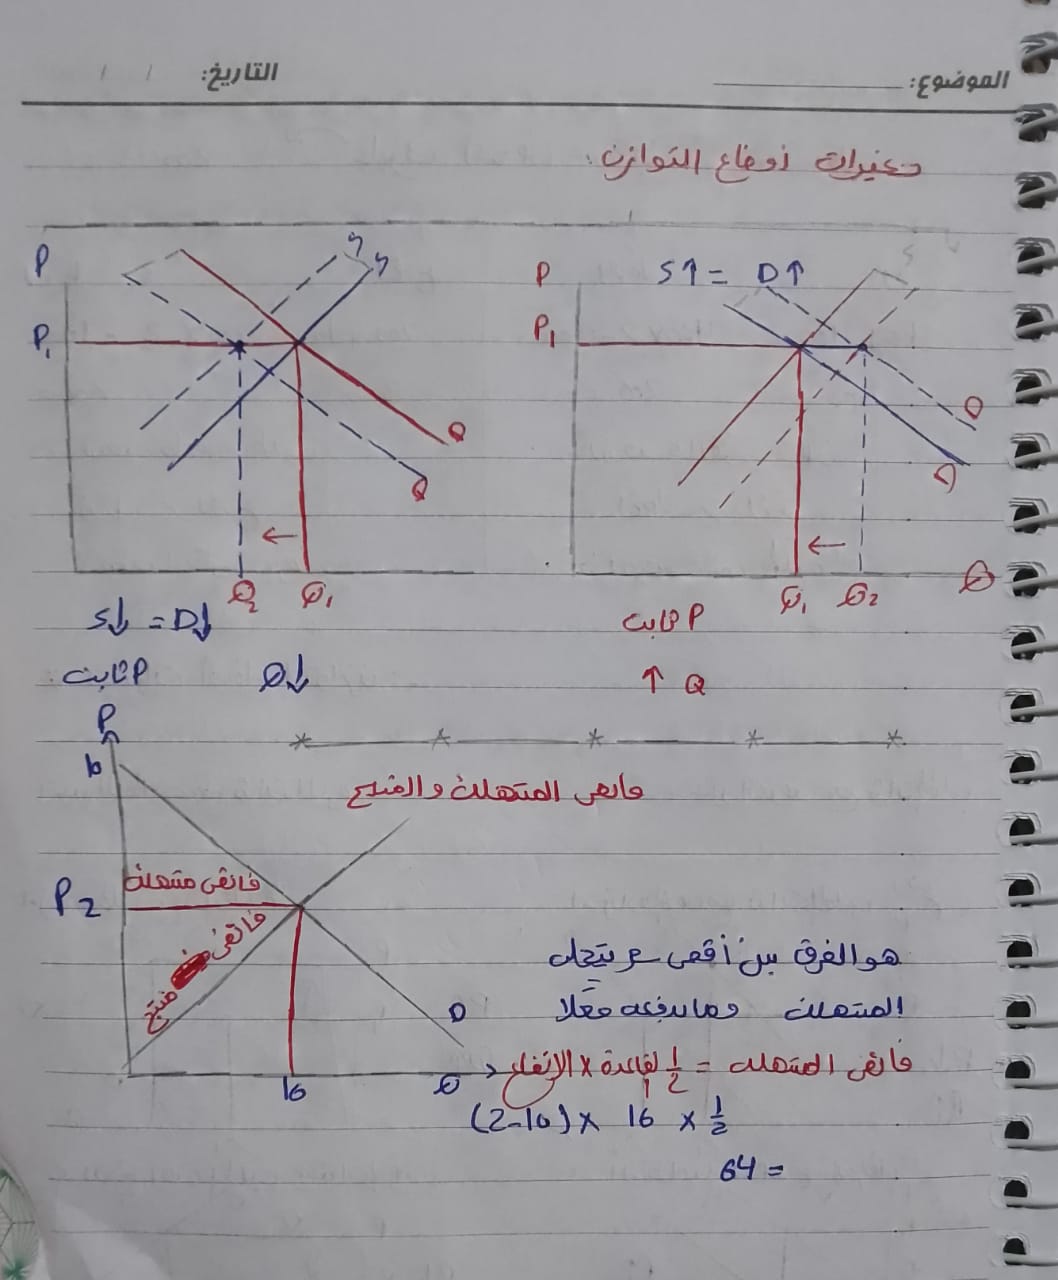 الموضوع: التاريخ: / /
تغيرات أوضاع التوازن:
S↑ = D↑
P
P₁
S
D
D
Q₁ Q₂ Q
P ثابت
↑ Q
P
P₁
S
S
D
D
Q₂ Q₁
S↓ = D↓
P ثابت Q↓
فائض المستهلك والمنتج
P
10
فائض مستهلك
P 2
فائض منتج
D
16 Q
هو الفرق بين أقصى سعر يتحمله
المستهلك وما يدفعه فعلا
فائض المستهلك = ½ القاعدة × الارتفاع
½ × 16 × (10-2)
= 64